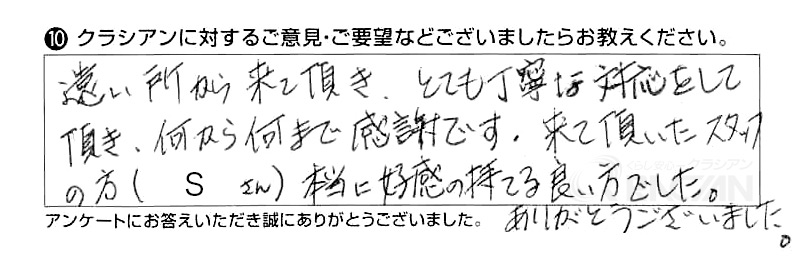 ❿ クラシアンに対するご意見・ご要望などございましたらお教えください。
遠い所から来て頂き、とても丁寧な対応をして
頂き、何から何まで感謝です。来て頂いたスタッフ
の方(Sさん)本当に好感の持てる良い方でした。
アンケートにお答えいただき誠にありがとうございました。
ありがとうございました。